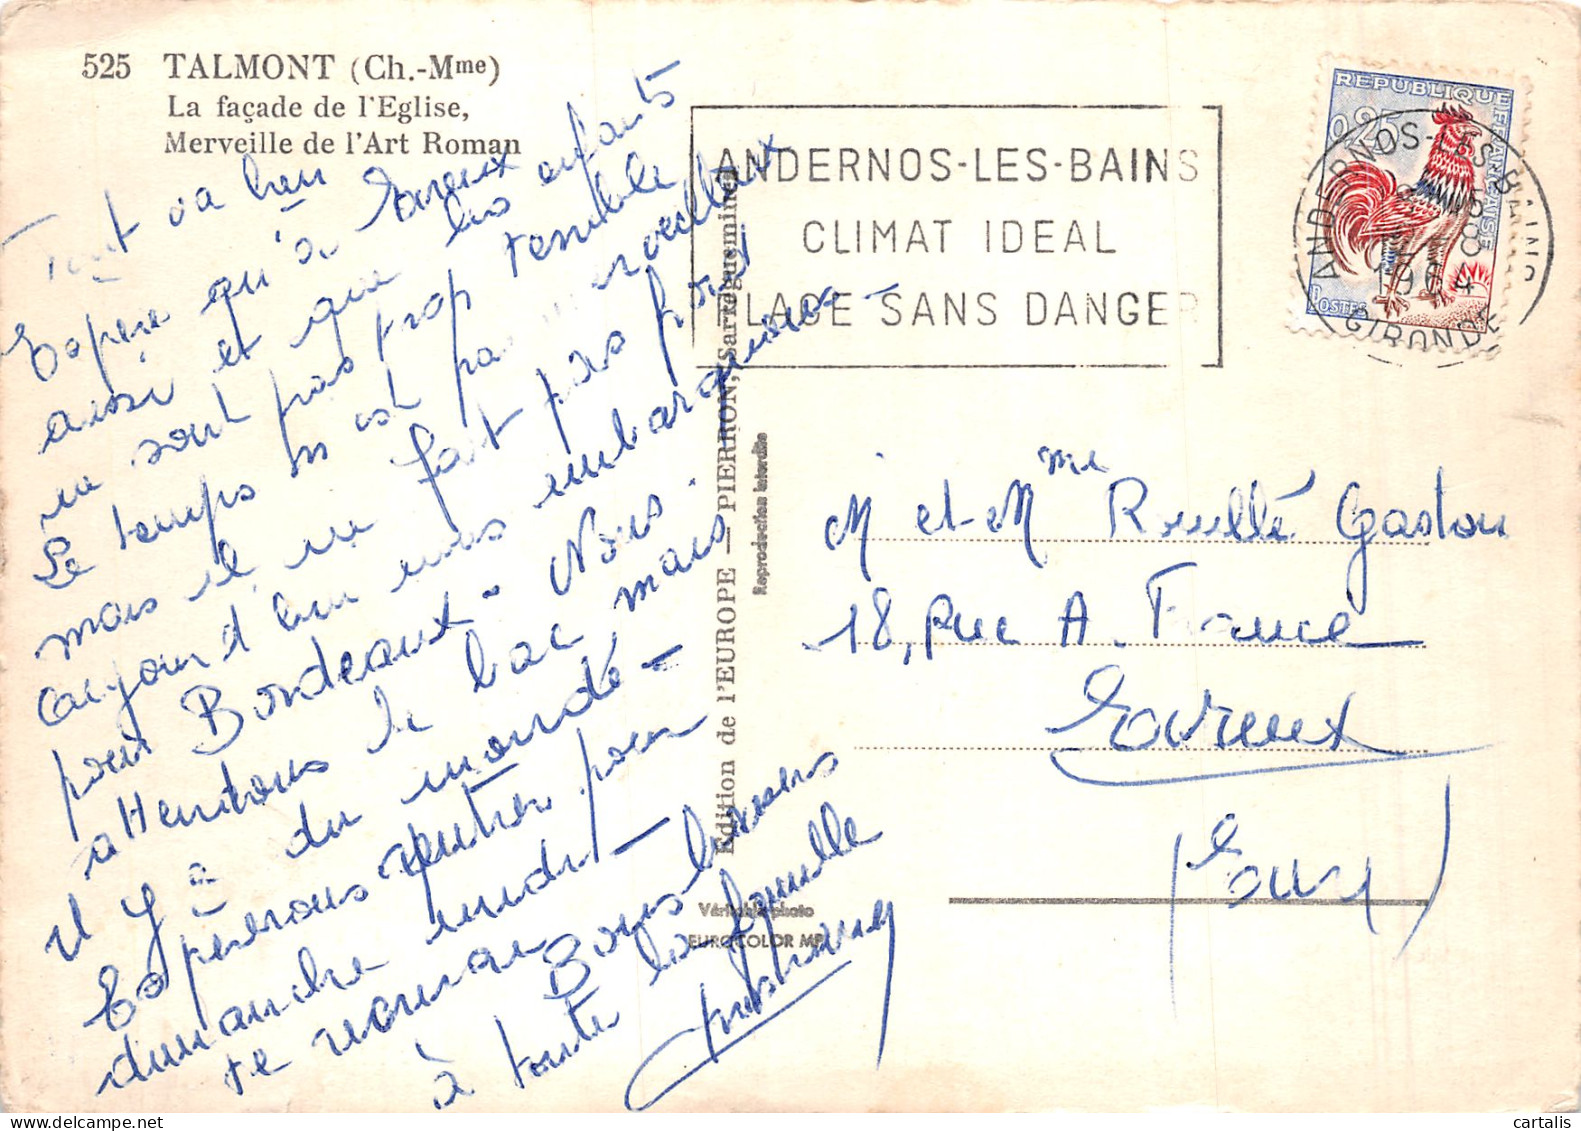 525 TALMONT (Ch.-Mme)
La façade de l'Eglise,
Merveille de l'Art Roman
Tout va bien
Espère qu'à Evreux
aussi et que les enfants
ne sont pas trop terrible
Le temps n'est pas merveilleux
mais il ne fait pas froid
Aujourd'hui nous embarquions
pour Bordeaux. Nous
attendons le bac mais
il y a du monde
Espérons rentrer pour
dimanche
Bons baisers
à toute la famille
Edition de l'EUROPE — PIERRON, Sarreguemines
Reproduction interdite
Véritable photo
EUROCOLOR MP
ANDERNOS-LES-BAINS
CLIMAT IDEAL
PLAGE SANS DANGER
REPUBLIQUE FRANÇAISE
0,25
POSTES
ANDERNOS-LES-BAINS
1964
GIRONDE
M et Mme Roullé Gaston
18, rue A. France
Evreux
(Eure)
cartalis